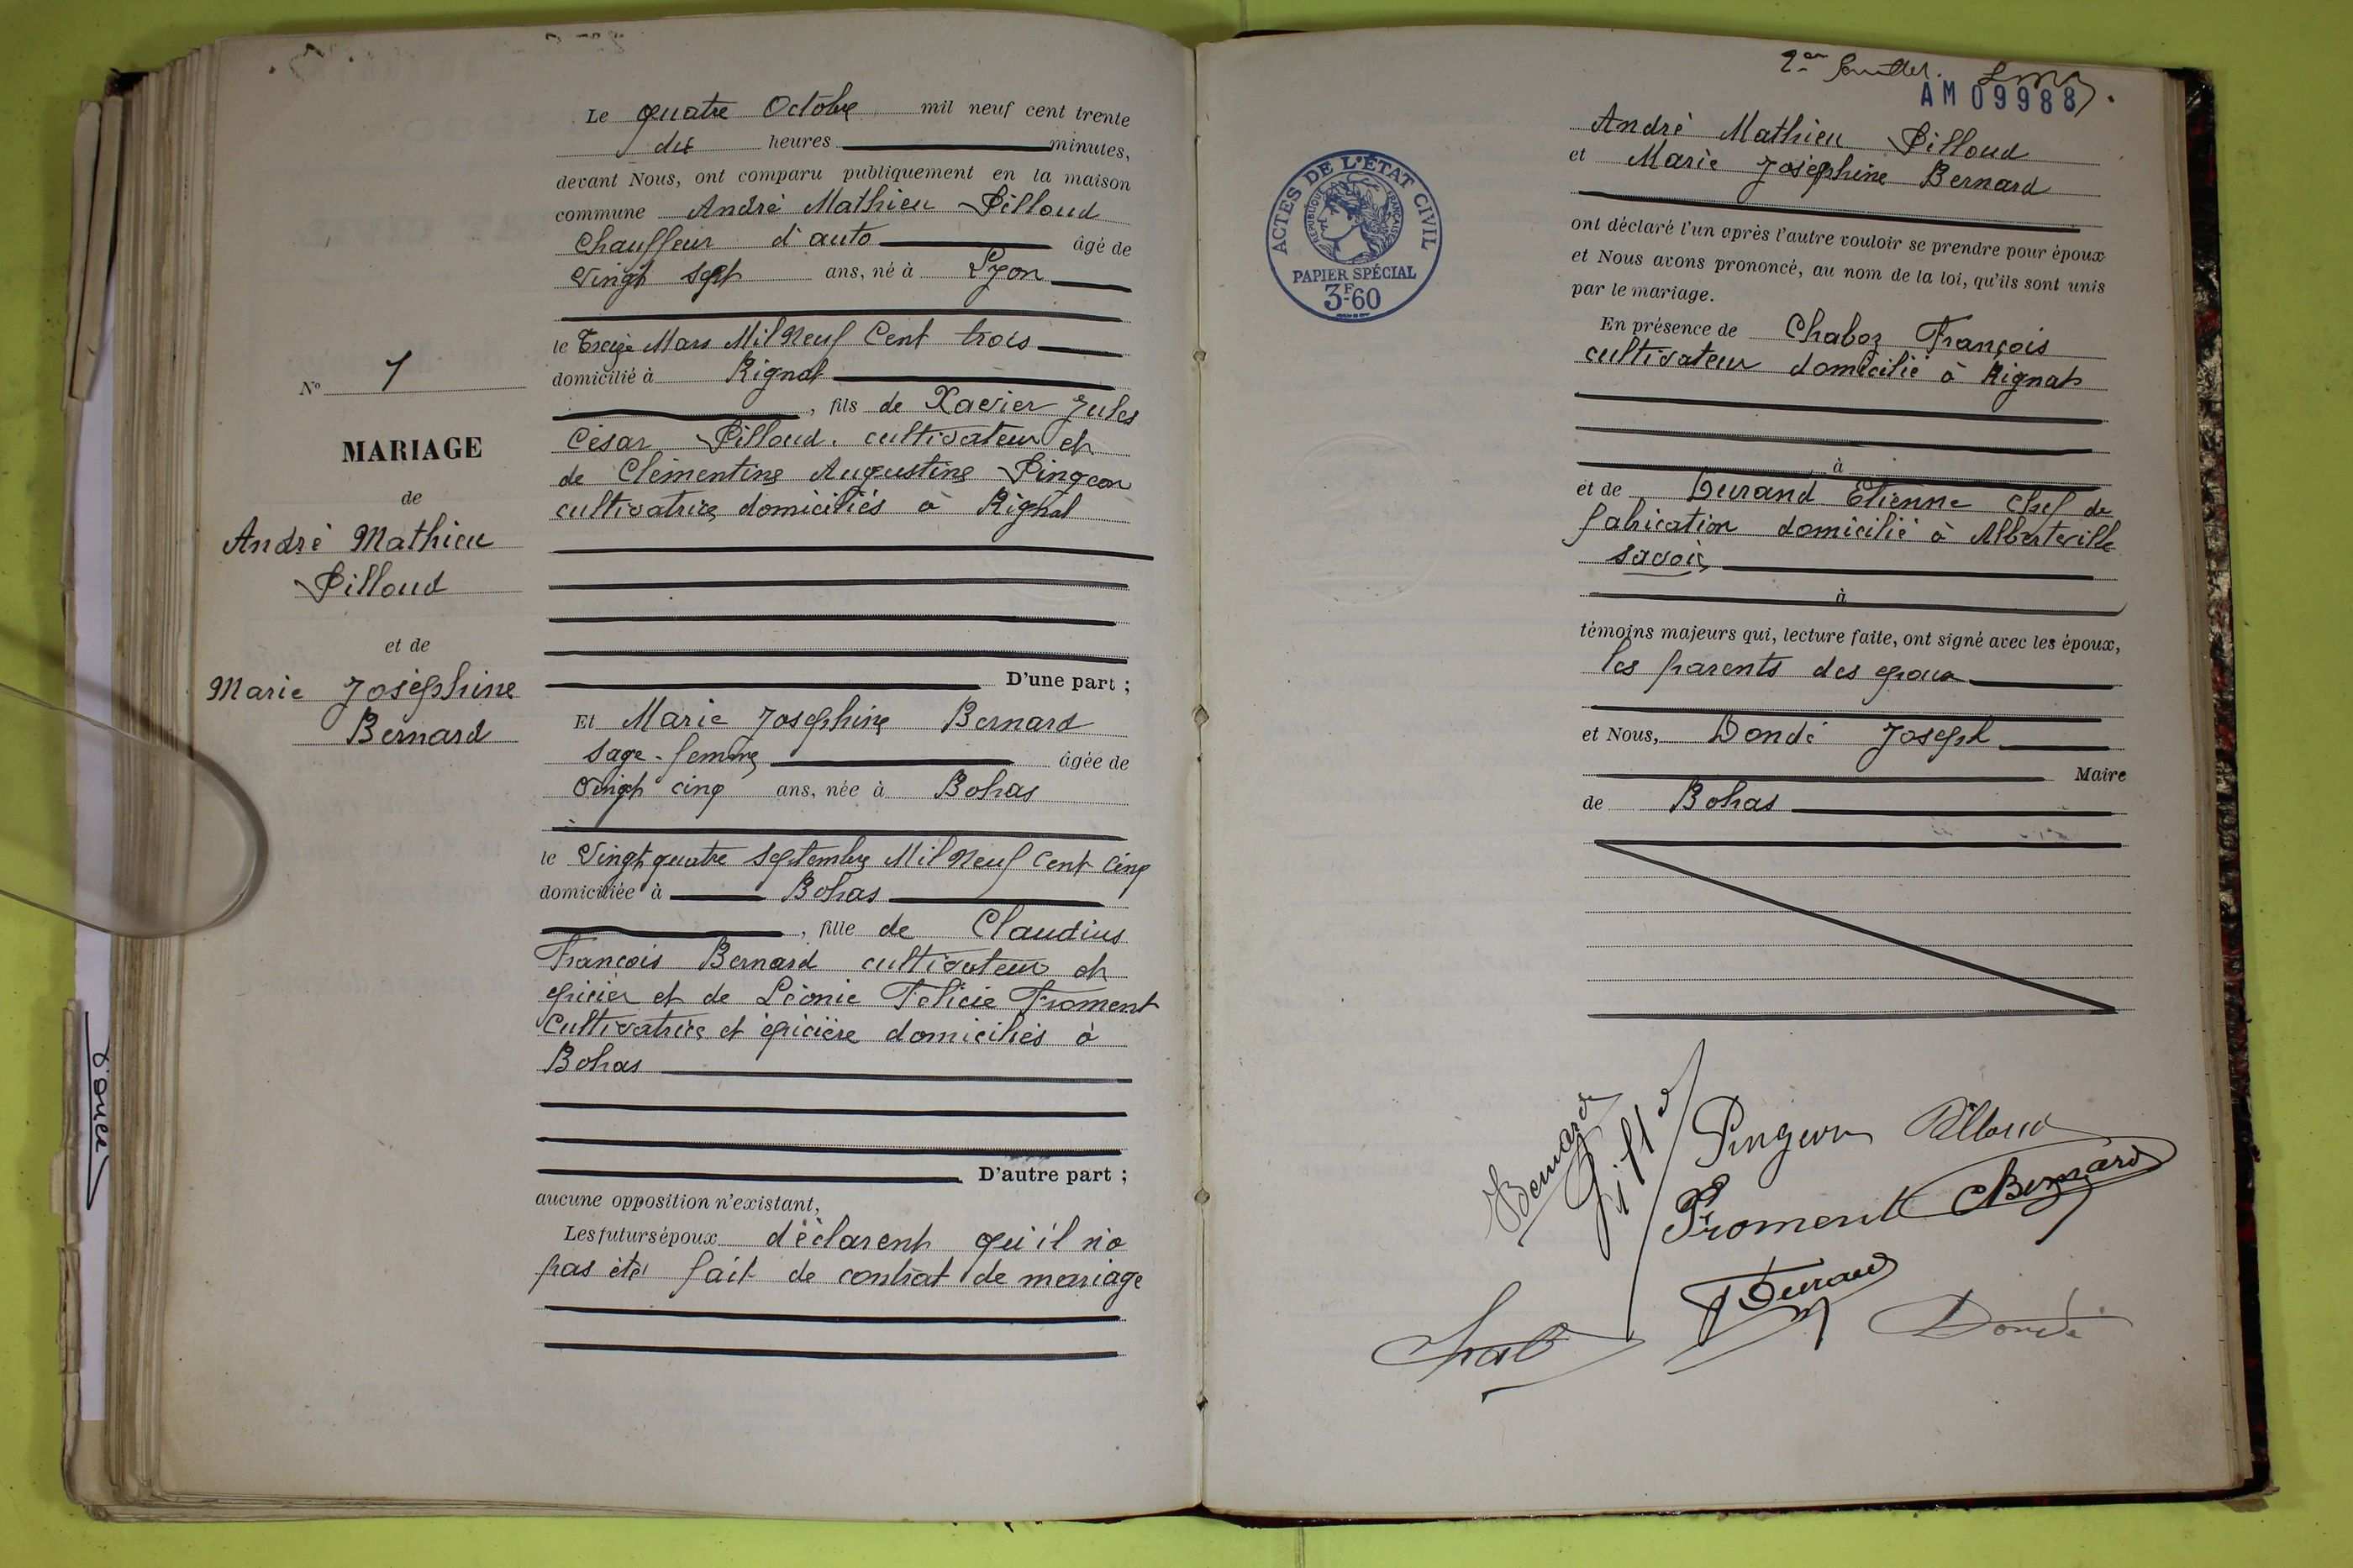 Le quatre Octobre mil neuf cent trente
dix heures minutes,
devant Nous, ont comparu publiquement en la maison
commune André Mathieu Pilloud
Chauffeur d'auto âgé de
Vingt sept ans, né à Lyon
le Treize Mars Mil Neuf Cent trois
domicilié à Rignat
, fils de Xavier Jules
César Pilloud cultivateur et
de Clémentine Augustine Pingeon
cultivatrice domiciliés à Rignat
D'une part ;
Et Marie Josephine Bernard
sage-femme âgée de
Vingt cinq ans, née à Bohas
le Vingt quatre Septembre Mil Neuf Cent Cinq
domiciliée à Bohas
, fille de Claudius
François Bernard cultivateur et
épicier et de Léonie Félicie Froment
Cultivatrice et épicière domiciliés à
Bohas
D'autre part ;
aucune opposition n'existant,
Les futurs époux déclarent qu'il n'a
pas été fait de contrat de mariage
N° 1
MARIAGE
de
André Mathieu
Pilloud
et de
Marie Joséphine
Bernard
2em feuillet.
AM 09988
ACTES DE L'ÉTAT CIVIL
RÉPUBLIQUE FRANÇAISE
PAPIER SPÉCIAL
3F-60
André Mathieu Pilloud
et Marie Joséphine Bernard
ont déclaré l'un après l'autre vouloir se prendre pour époux
et Nous avons prononcé, au nom de la loi, qu'ils sont unis
par le mariage.
En présence de Chaboz François
cultivateur domicilié à Rignat
à
et de Durand Etienne Chef de
fabrication domicilié à Albertville
Savoie
à
témoins majeurs qui, lecture faite, ont signé avec les époux,
les parents des epoux
et Nous, Dondé Joseph
Maire
de Bohas
Bernard
Pilloud
Pingeon Pilloud
Froment CBernard
Durand
Dondé